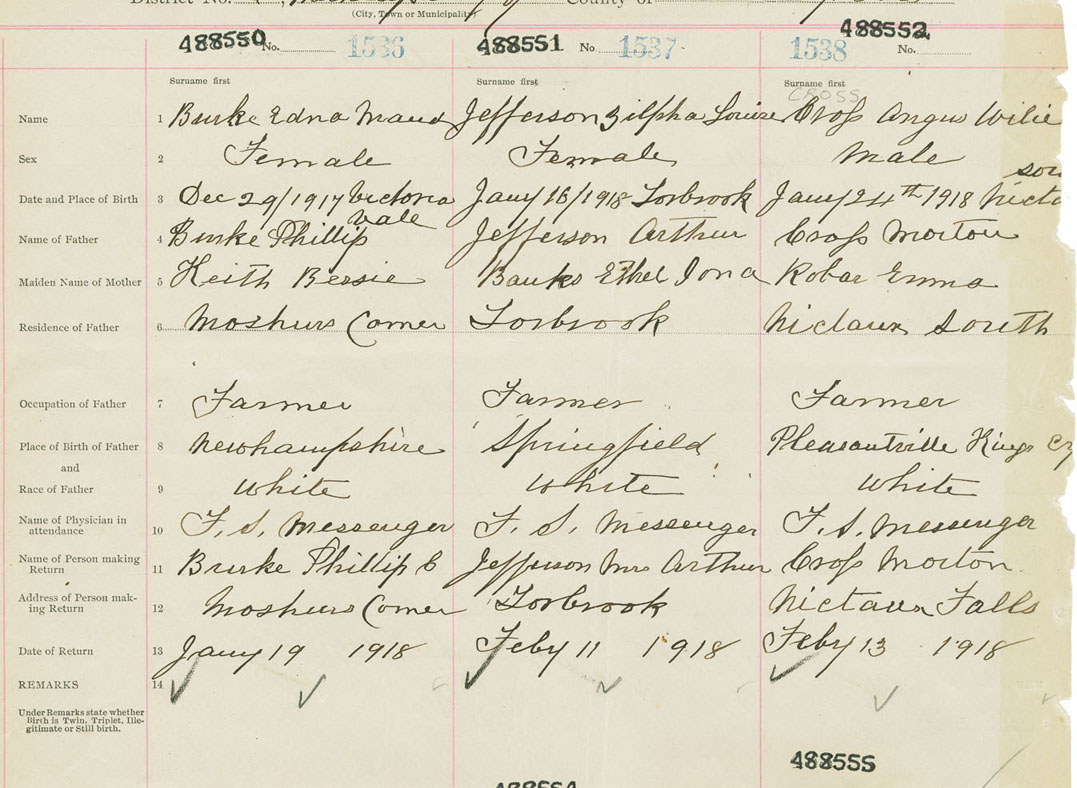 District No.
County of
(City, Town or Municipality)
488550 No. 1536 488551 No 1537 1538 488552 No.
Surname first Surname first Surname first
CROSS
Name 1 Burke Edna Maud Jefferson Zilpha Louise Cross Angus Wilie
Sex 2 Female Female Male
Date and Place of Birth 3 Dec 29/1917 Victoria Vale Jany 16/1918 Torbrook Jany 24th 1918
Name of Father 4 Burke Phillip Jefferson Arthur Cross Morton
Maiden Name of Mother 5 Keith Bessie Banks Ethel Iona Robar Emma
Residence of Father 6 Moshurs Corner Torbrook Nictaux South
Occupation of Father 7 Farmer Farmer Farmer
Place of Birth of Father 8 Newhampshire Springfield Pleasantville Kings Cy
and
Race of Father 9 White White White
Name of Physician in attendance 10 F. S. Messenger F. S. Messenger F. S. Messenger
Name of Person making Return 11 Burke Phillip C Jefferson Mrs Arthur Cross Morton
Address of Person making Return 12 Moshurs Corner Torbrook Nictaux Falls
Date of Return 13 Jany 19 1918 Feby 11 1918 Feby 13 1918
REMARKS 14
Under Remarks state whether
Birth is Twin, Triplet, Ille-
gitimate or Still birth.
488555
488554